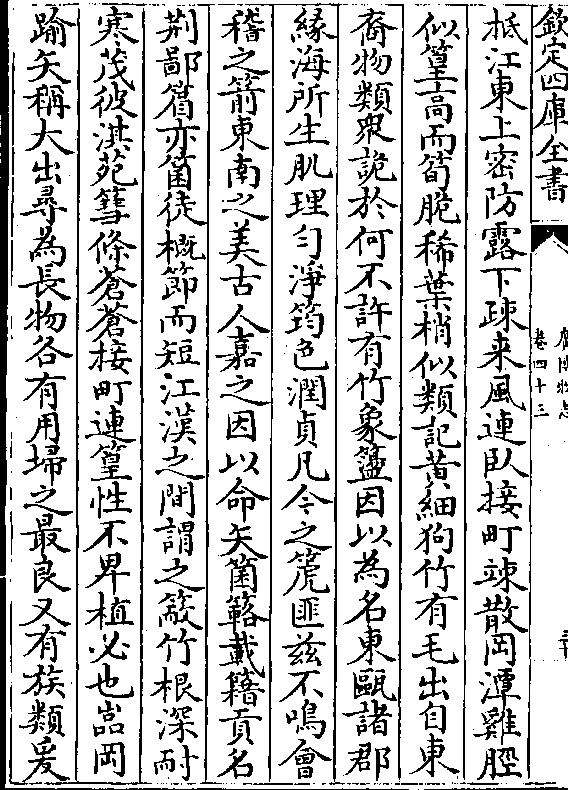 欽定四庫全書
廣博物志
卷四十三
柢江東上密防露下疎来風連臥接町竦散岡潭雞脛
似篁高而筍脆稀葉梢似類記黄細狗竹有毛出自東
裔物類衆詭於何不許有竹象籚因以為名東甌諸郡
緣海所生肌理勻淨筠色潤貞凡今之箎匪兹不鳴會
稽之箭東南之美古人嘉之因以命矢箘簵載籍貢名
荆鄙篃亦箘徒概節而短江漢之間謂之䈽竹根深耐
寒茂彼淇苑篲條蒼蒼接町連篁性不卑植必也嵓岡
踰矢稱大出尋為長物各有用埽之最良又有族類爰